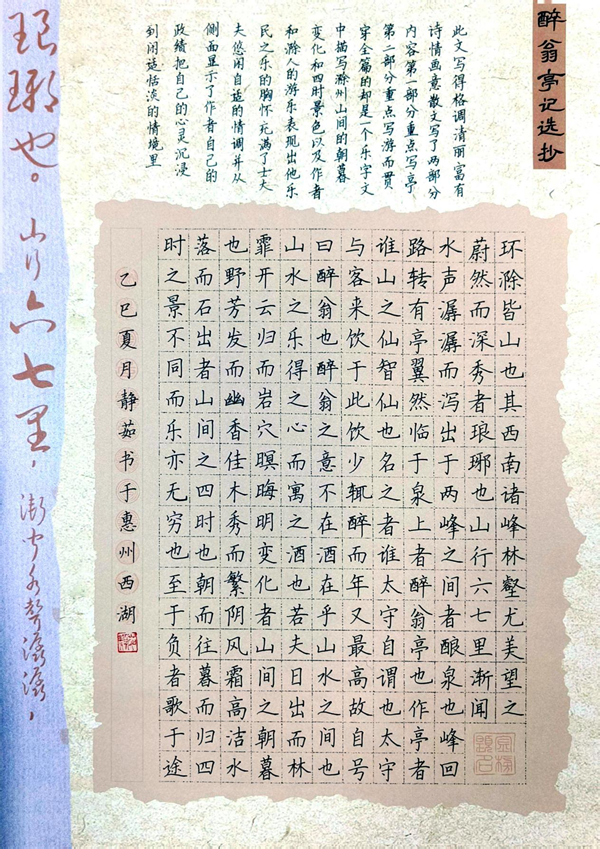 醉翁亭记选抄
此文写得格调清丽富有
诗情画意散文写了两部分
内容第一部分重点写亭
第二部分重点写游而贯
穿全篇的却是一个乐字文
中描写滁州山间的朝暮
变化和四时景色以及作者
和滁人的游乐表现出他乐
民之乐的胸怀充满了士大
夫悠闲自适的情调并从
侧面显示了作者自己的
政绩把自己的心灵沉浸
到闲适恬淡的情境里
环滁皆山也其西南诸峰林壑尤美望之
蔚然而深秀者琅琊也山行六七里渐闻
水声潺潺而泻出于两峰之间者酿泉也峰回
路转有亭翼然临于泉上者醉翁亭也作亭者
谁山之仙智仙也名之者谁太守自谓也太守
与客来饮于此饮少辄醉而年又最高故自号
曰醉翁也醉翁之意不在酒在乎山水之间也
山水之乐得之心而寓之酒也若夫日出而林
霏开云归而岩穴暝晦明变化者山间之朝暮
也野芳发而幽香佳木秀而繁阴风霜高洁水
落而石出者山间之四时也朝而往暮而归四
时之景不同而乐亦无穷也至于负者歌于途
乙巳夏月静茹书于惠州西湖
琅琊也。山行六七里，渐闻水声潺潺，